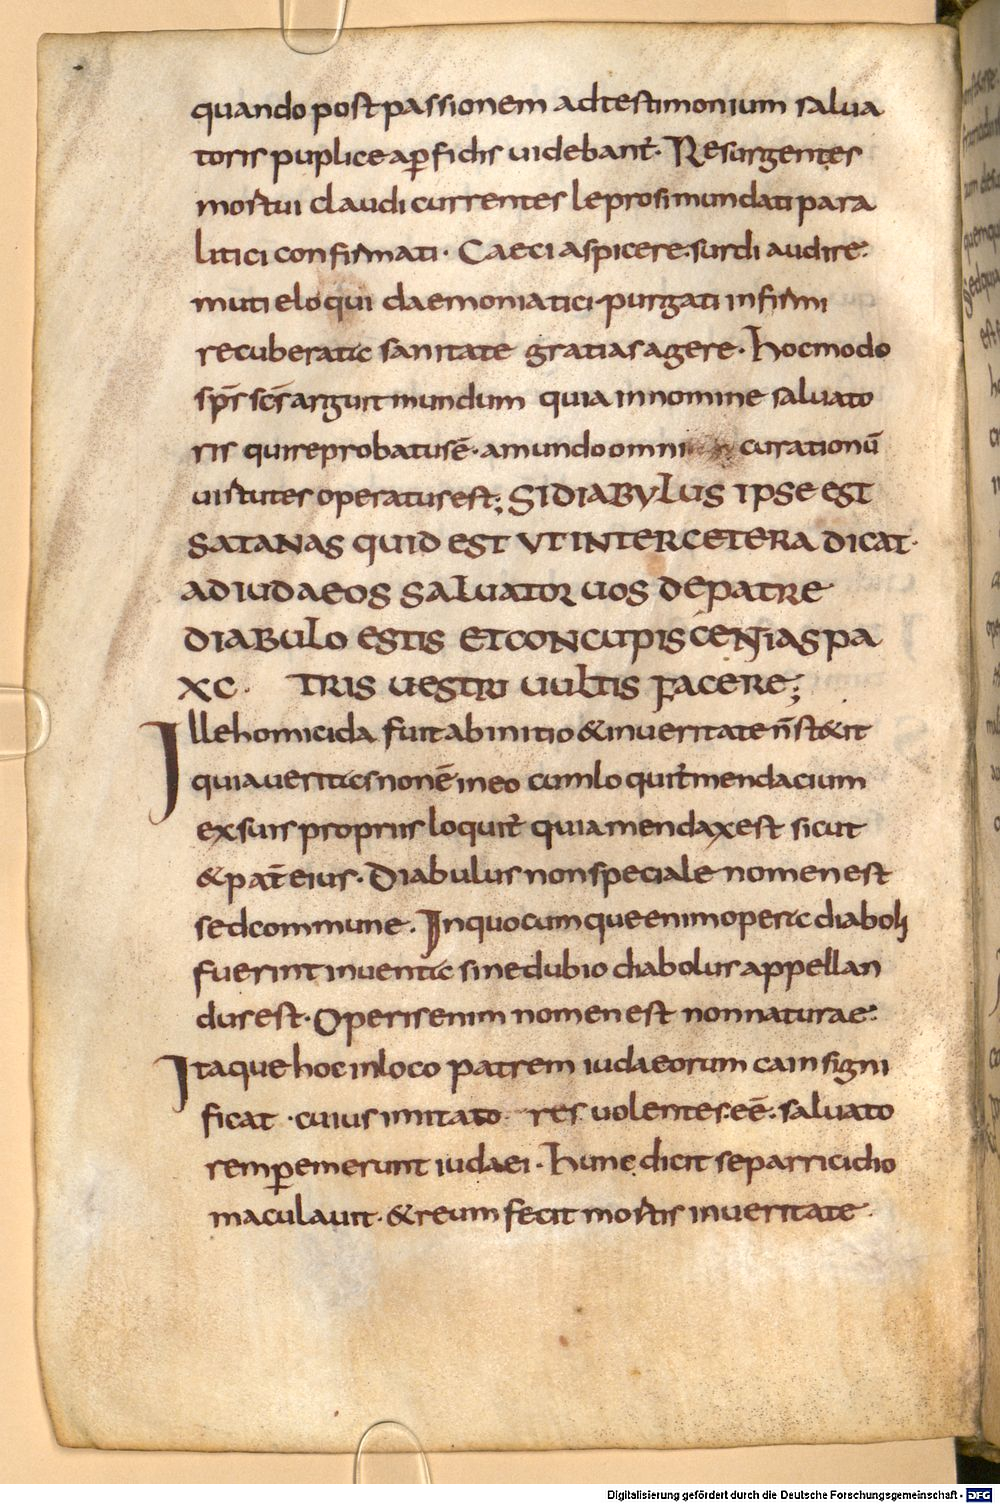 quando post passionem ad testimonium salua
toris puplice a ꝑfidis uidebant᷑. Resurgentes
mortui claudi currentes leprosi mundati para
litici confirmati. Caeci aspicere. surdi audire.
muti eloqui daemoniatici purgati infirmi
recuberata sanitate gratias agere. hoc modo
sp̄s sc̄s arguit mundum quia in nomine saluato
ris qui reprobatus ē. a mundo omni curationū
uirtutes operatus est; SI DIABYLUS IPSE EST
SATANAS QUID EST UT INTER CETERA DICAT.
AD IUDAEOS SALUATOR UOS DE PATRE
DIABULO ESTIS ET CONCUPISCENTIAS PA
XC. TRIS UESTRI UULTIS FACERE;
Ille homicida fuit ab initio & in ueritate n̄ st&it
quia ueritas non ē in eo cum loquit᷑ mendacium
ex suis propriis loquit᷑ quia mendax est sicut
& pat̄ eius. Diabulus non speciale nomen est
sed commune. In quocumque enim opera diaboli
fuerint inuenta sine dubio diabolus appellan
dus est. Operis enim nomen est non naturae.
Itaque hoc in loco patrem iudaeorum cain signi
ficat. cuius imitato res uolentes eē. saluato
rem ꝑemerunt iudaei. hunc dicit se parricidio
maculauit. & reum fecit mortis in ueritate.
Digitalisierung gefördert durch die Deutsche Forschungsgemeinschaft - DFG